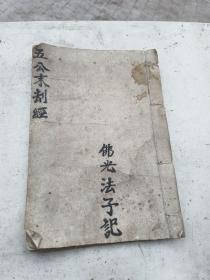 五公末刼經
佛光法子記